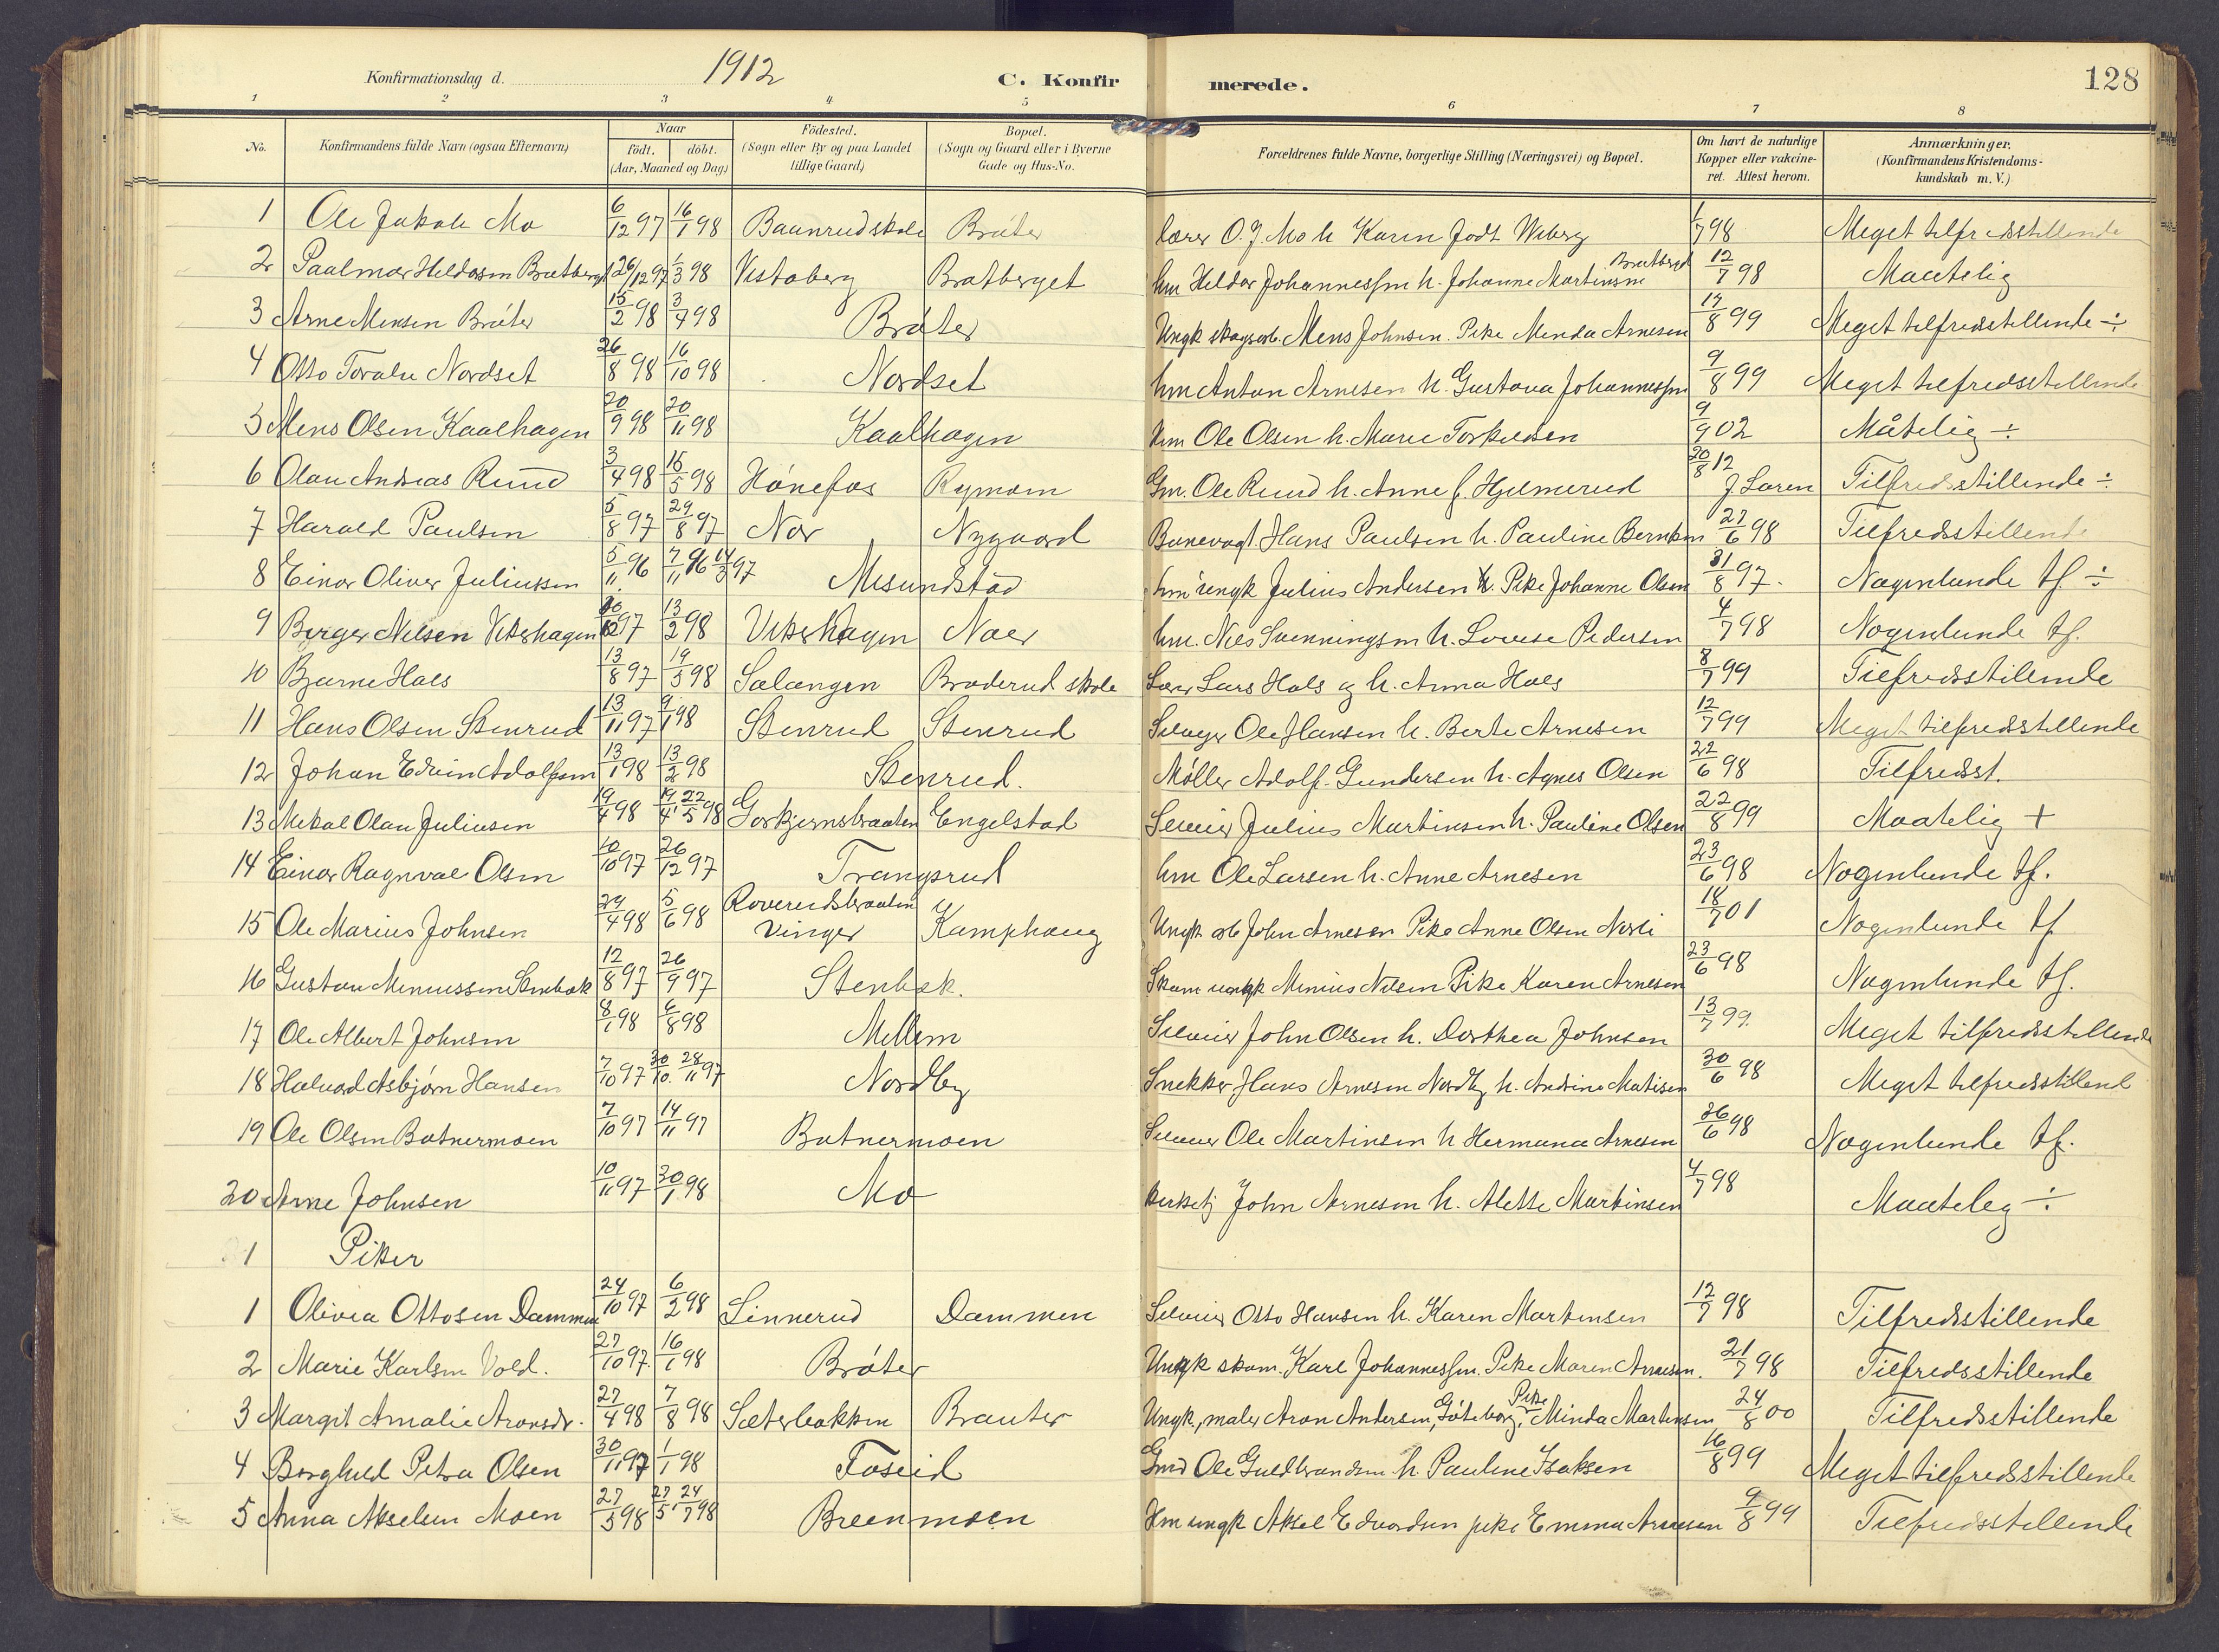 Konfirmationsdag d. 1912 C. Konfirmerede. 128
1 2 3 4 5 6 7 8
No. Konfirmandens fulde Navn (ogsaa Efternavn) Naar födt. döbt. (Aar, Maaned og Dag) Födested. (Sogn eller By og paa Landet tillige Gaard) Bopæl. (Sogn og Gaard eller i Byerne Gade og Hus-No. Forældrenes fulde Navne, borgerlige Stilling (Næringsvei) og Bopæl. Om havt de naturlige Kopper eller vakcineret. Attest herom. Anmærkninger. (Konfirmandens Kristendomskundskab m. V.)
1 Ole Jakob Mo 6/12 97 16/1 98 Baanrud skole Bråter Lærer O. J. Mo h Karen født Wiberg 1/7 98 Meget tilfredsstillende
2 Paalmar Heldorsen Bratberget 26/12 97 1/3 98 Vestaberg Bratberget hm Heldor Johannessen h. Johanne Martinsen Bratberget 12/7 98 Maatelig
3 Arne Mensen Bråter 15/2 98 3/4 98 Bråter Ungk skogsarb. Mens Johnsen. Pike Menda Arnesen 17/8 99 Meget tilfredsstillende ÷
4 Otto Toralv Nordset 26/8 98 16/10 98 Nordset hm Anton Arnesen h. Gustava Johannessen 9/8 99 Meget tilfredsstillende
5 Mens Olsen Kaalhagen 20/9 98 20/11 98 Kaalhagen hm Ole Olsen h. Marie Torkildsen 9/9 02 Måtelig ÷
6 Olav Andreas Ruud 3/4 98 15/5 98 Hönefos Rymoen Gm. Ole Ruud h. Anne f. Hjelmerud 20/8 12 J Loren Tilfredsstillende ÷
7 Harald Paulsen 5/8 97 29/8 97 Nor Nygaard Banevogt. Hans Paulsen h. Pauline Berntsen 27/6 98 Tilfredsstillende
8 Einar Oliver Juliussen 5/11 96 7/11 96 14/3 97 Mesundstad hm ungk Julius Andersen Pike Johanne Olsen 31/8 97. Nogenlunde tf. ÷
9 Birger Nilsen Vikerhagen 97 13/2 98 Vikerhagen Naer hm. Nils Svenningsen h. Lovise Pedersen 4/7 98 Nogenlunde tf.
10 Bjarne Hals 13/8 97 19/5 98 Salangen Broderud skole Lærer Lars Hals og h. Anna Hals 8/7 99 Tilfredsstillende
11 Hans Olsen Stenrud 13/11 97 9/1 98 Stenrud Stenrud Selveger Ole Hansen h. Berte Arnesen 12/7 99 Meget tilfredsstillende
12 Johan Edvin Adolfsen 13/1 98 13/2 98 Stenrud. Møller Adolf Gundersen h. Agnes Olsen 22/6 98 Tilfredsst.
13 Mikal Olav Juliusen 19/4 98 19/4 22/5 98 Gorkjernsbraaten Engelstad Seleier Julius Martinsen h. Pauline Olsen 22/8 99 Maatelig +
14 Einar Ragnval Olsen 10/10 97 26/12 97 Trangsrud hm Ole Larsen h. Anne Arnesen 23/6 98 Nogenlunde tf.
15 Ole Marius Johnsen 29/4 98 5/6 98 Roverudsbraaten Vinger Kamphaug Ungk arb John Arnesen Pike Anne Olsen Norli 18/7 01 Nogenlunde tf
16 Gustav Meniussen Stenbæk 12/8 97 26/9 97 Stenbæk. Skom ungk Menius Nilsen Pike Karen Arnesen 23/6 98 Nogenlunde tf.
17 Ole Albert Johnsen 8/1 98 6/8 98 Mellem Selveier John Olsen h. Dorthea Johnsen 13/7 99. Meget tilfredsstillende
18 Halvard Asbjörn Hansen 7/10 97 30/10. 28/11 97 Nordby Snekker Hans Arnesen Nordby h. Andrine Matisen 30/6 98 Meget tilfredsstillend
19 Ole Olsen Botnermoen 7/10 97 14/11 97 Botnermoen Selveier Ole Martinsen h Hermana Arnesen 26/6 98 Nogenlunde tf.
20 Arne Johnsen 10/11 97 30/1 98 Mo kirketj John Arnesen h. Alette Martinsen 4/7 98 Maateleg ÷
1 Piker
1 Olivia Ottosen Dammen 24/10 97 6/2 98 Linnerud Dammen Selveier Otto Hansen h. Karen Martinsen 12/7 98 Tilfredsstillende
2 Marie Karlsen Vold. 27/10 97. 16/1 98 Bråter Ungk skom. Karl Johannessen. Pike Maren Arnesen. 21/7 98 Tilfredsstillende
3 Margit Amalie Aronsdr. 27/4 98 7/8 98 Sæterbakken Brauter Ungk, maler Aron Andersen, Göteborg, Pike Minda Martinsen 24/8 00 Tilfredsstillende
4 Borghild Petra Olsen 30/11 97 1/1 98 Foseid Gmd Ole Guldbrandsen h. Pauline Isaksen 16/8 99 Meget tilfredsstillende
5 Anna Akselsen Moen 27/3 98 27/5 24/7 98 Breenmoen Hm ungk Aksel Edvardsen pike Emma Arnesen 9/8 99 Tilfredsstillende